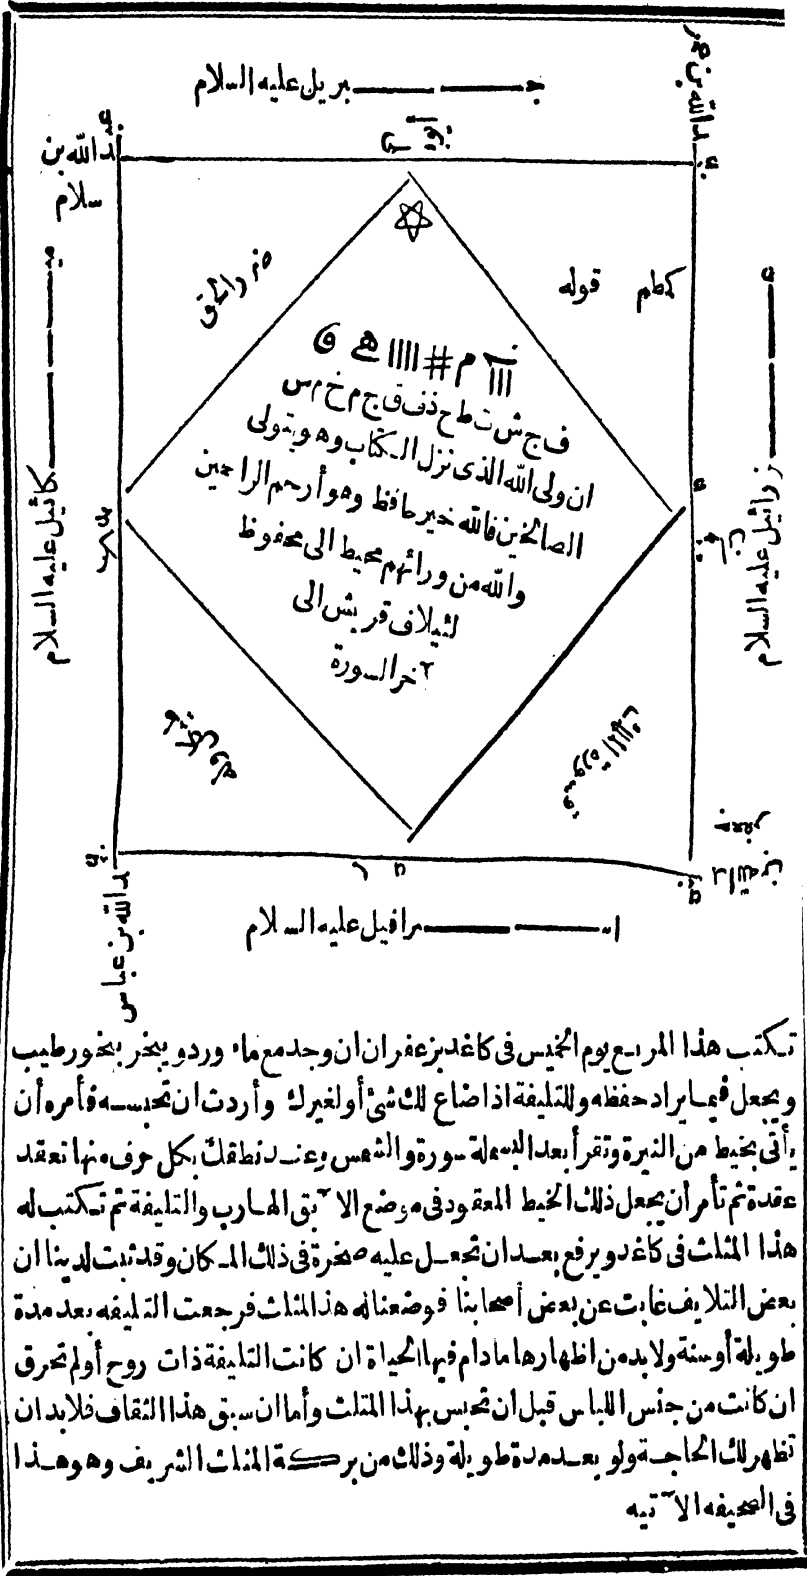 جـــــبريل عليه السلام
عبد الله بن عمر
عبد الله بن
سلام
قوله
ميـــــكائيل عليه السلام
عـــــزرائيل عليه السلام
ااا م # اااا ه و
ف ج ش ت ط ح ذ ف ق ج م خ م س
ان ولى الله الذى نزل الكتاب وهو يتولى
الصالحين فالله خير حافظ وهو أرحم الراحمين
والله من ورائهم محيط الى محفوظ
لئيلاف قريش الى
آخر السورة
عبد الله بن
جعفر
عبد الله بن عباس
اســـــرافيل عليه السلام
تكتب هذا المربع يوم الخميس فى كاغد بزعفران ان وجد مع ماء ورد ويبخر ببخور طيب
ويجعل فيما يراد حفظه وللتليفة اذا ضاع لك شئ أو لغيرك وأردت ان تحبسه فأمره أن
يأتى بخيط من النيرة وتقرأ بعد البسملة سورة والشمس وعند نطقك بكل حرف منها تعقد
عقدة ثم تأمر أن يجعل ذلك الخيط المعقود فى موضع الآبق الهارب والتليفة ثم تكتب له
هذا المثلث فى كاغد ويرفع بعد ان تجعل عليه صخرة فى ذلك المكان وقد ثبت لدينا ان
بعض التلايف غابت عن بعض أصحابنا فوضعنا له هذا المثلث فرجعت التليفه بعد مدة
طويلة أو سنة ولا بد من اظهارها ما دام فيها الحياة ان كانت التليفة ذات روح أو لم تحرق
ان كانت من جنس اللباس قبل ان تحبس بهذا المثلث وأما ان سبق هذا الثقاف فلا بد ان
تظهر لك الحاجة ولو بعد مدة طويلة وذلك من بركة المثلث الشريف وهو هذا
فى الصحيفه الآتيه